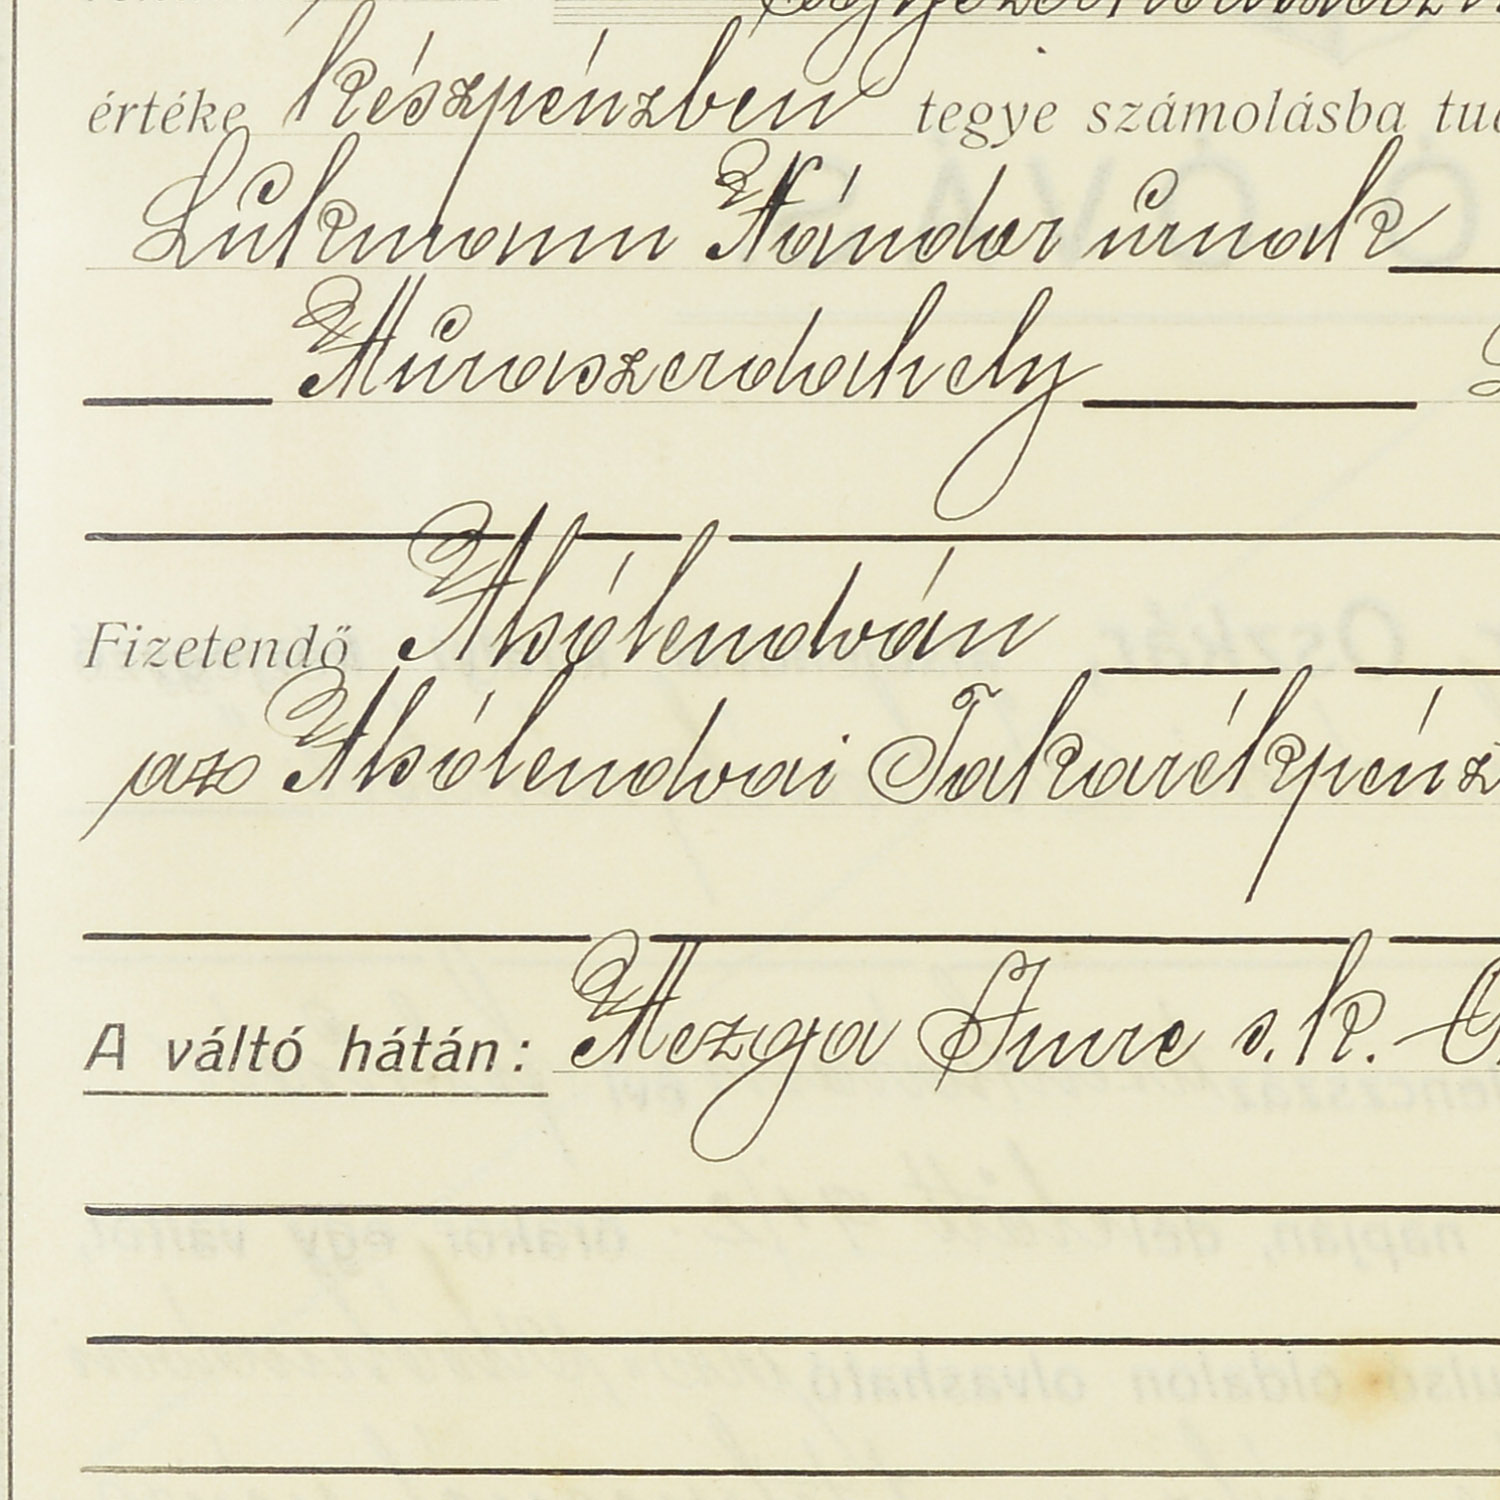 értéke készpénzben tegye számolásba
Lukmann Nándor úrnak
Muraszerdahely
Fizetendő Alsólendván
az Alsólendvai Takarékpénz
A váltó hátán: Mezga Imre s.k. -